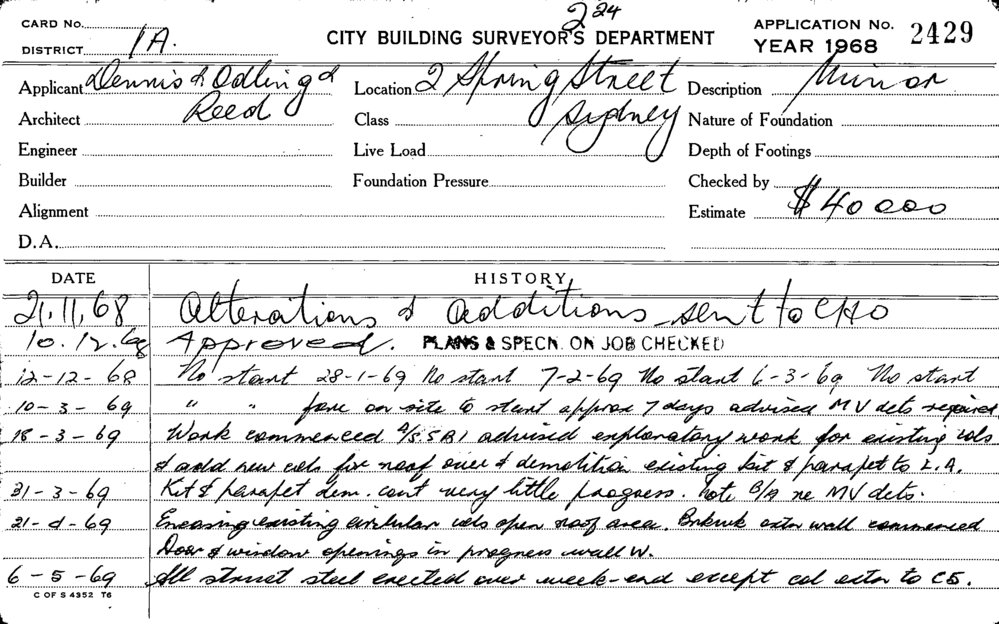 CARD No.
224
APPLICATION No. 2429
DISTRICT 1A.
CITY BUILDING SURVEYOR'S DEPARTMENT
YEAR 1968
Applicant Dennis & Odling &
Location 2 Spring Street
Description Minor
Architect Reed
Class Sydney
Nature of Foundation
Engineer
Live Load
Depth of Footings
Builder
Foundation Pressure
Checked by
Alignment
Estimate $40 000
D.A.
DATE HISTORY
21.11.68 Alterations & additions sent to CHO
10.12.68 Approved. PLANS & SPECN. ON JOB CHECKED
12-12-68 No start 28-1-69 No start 7-2-69 No start 6-3-69 No start
10-3-69 " " fore on site to start approx 7 days advised MV dets required
18-3-69 Work commenced advised exploratory work for existing cols
& add new cols for roof over & demolition existing kit & parapet to L.A.
31-3-69 Kit & parapet dem. cont very little progress. note re MV dets.
21-4-69 Encasing existing circular cols open roof area. Brkwk extn wall commenced
Door & window openings in progress wall W.
6-5-69 All struct steel erected over week-end except col extn to C5.
C OF S 4352 T6